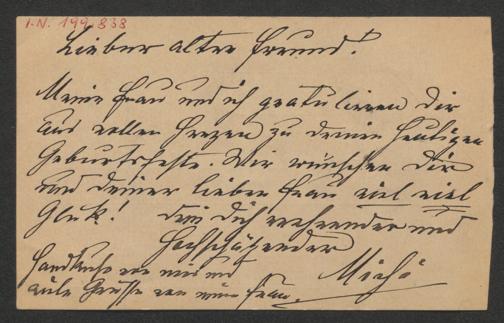 I.N. 199.838
Lieber alter Freund!
Meine Frau und ich gratulieren Dir
aus vollem Herzen zu deinem heutigen
Geburtsfeste. Wir wünschen Dir
und deiner lieben Frau viel viel
Glück! Dein Dich verehrender und
Hochschätzender
Handküsse von mir und
viele Grüsse von meiner Frau.